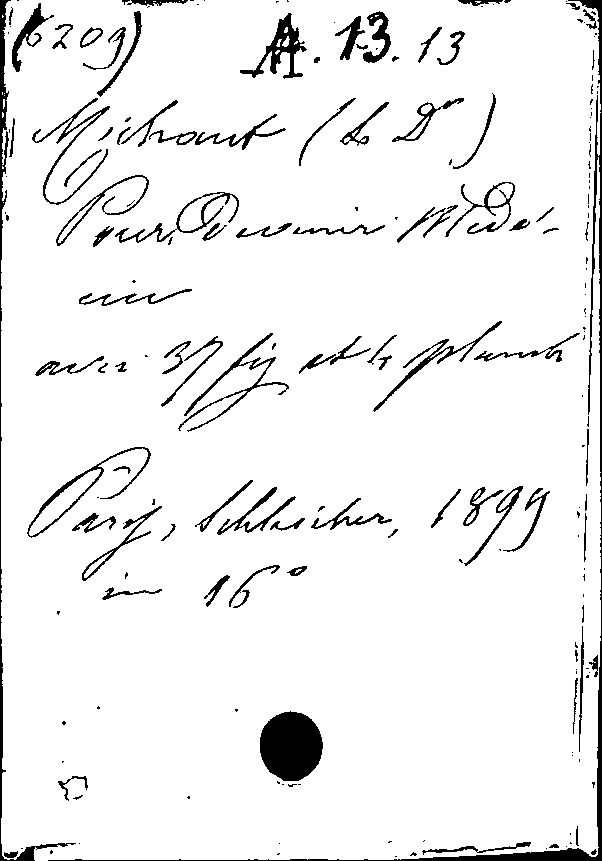 (6209) A. 13. 13
Michaut (Le Dr)
Pour Devenir Médé-
cin
avec 37 fig et 4 planch
Paris, Schleicher, 1899
in 16°